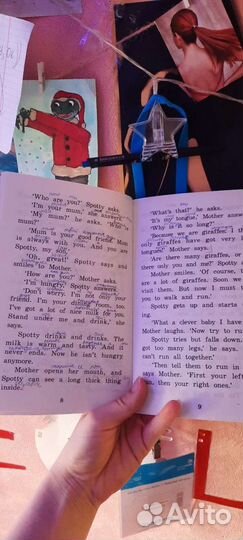 'Who are you?' Spotty asks.
'I'm your mum,' she answers.
'My mum?' he asks. 'Who's
mum?'
'Mum is your good friend. Mum
is always with you. And you
my son.'
'Oh, great!' Spotty says and
smiles to Mother.
'How are you?' Mother asks.
'I'm hungry,' Spotty answers.
'Don't worry. I'm not only your
friend. I'm your
I've got a lot of nice milk for you.
Stand under me and drink,' she
says.
Spotty drinks and drinks. The
milk is warm and tasty. And it
never ends. Now he isn't hungry
anymore.
Mother opens her month, and
Spotty can see a long thick thing
inside.
8
'What's that?' he asks.
'It's my tongue,' Mother answers
'Why is it so long?'
'Because we are giraffes. I th
only giraffes have got very l
tongues,' Mother says.
'Are there many giraffes, or
there only you and me?' Spotty
Mother smiles. 'Of course, t
are a lot of giraffes. Soon we
visit them. But now I must t
you to walk and run.'
Spotty gets up and starts
ing.
'What a clever baby I have
Mother laughs. 'Now try to ru
Spotty tries but falls down.
got too many legs,' he says.
can't run all together.'
'Then tell them to run in
says Mother. 'First your lef
then your right ones.'
9
Avito